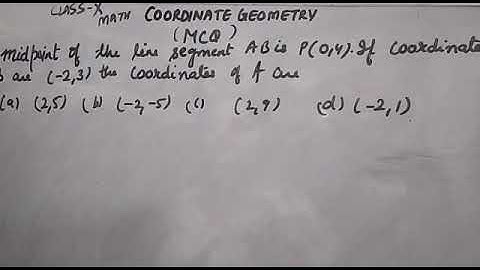 CLASS-X
MATH COORDINATE GEOMETRY
(MCQ)
midpoint of the line segment AB is P(0,4). If coordinate
B are (-2,3) the coordinates of A are
(a) (2,5) (b) (-2,-5) (c) (2,9) (d) (-2,1)